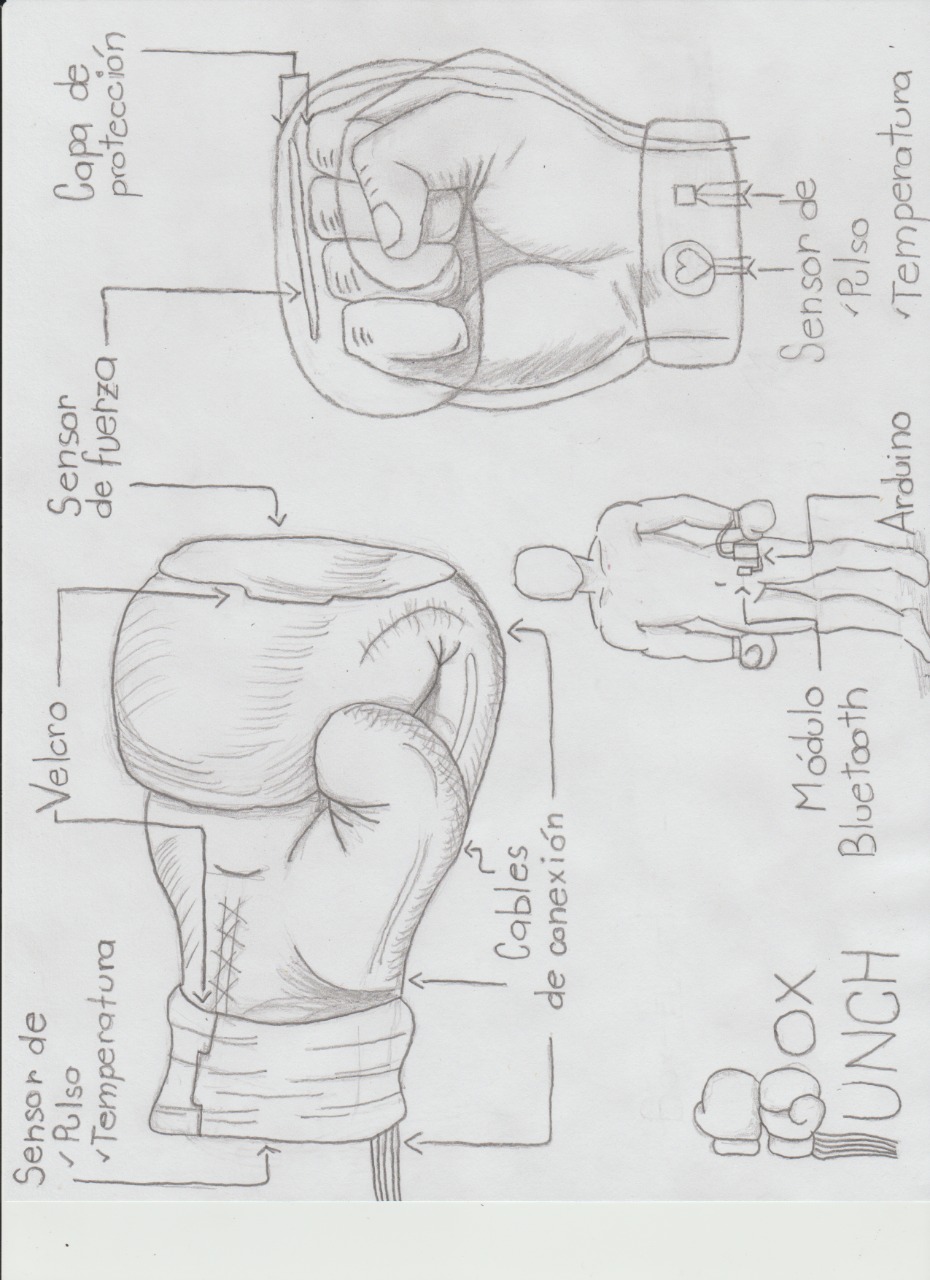 Sensor de
✓ Pulso
✓ Temperatura
Velcro
Sensor
de fuerza
Capa de
protección
Cables
de conexión
Módulo
Bluetooth
Arduino
Sensor de
✓ Pulso
✓ Temperatura
BOX
PUNCH